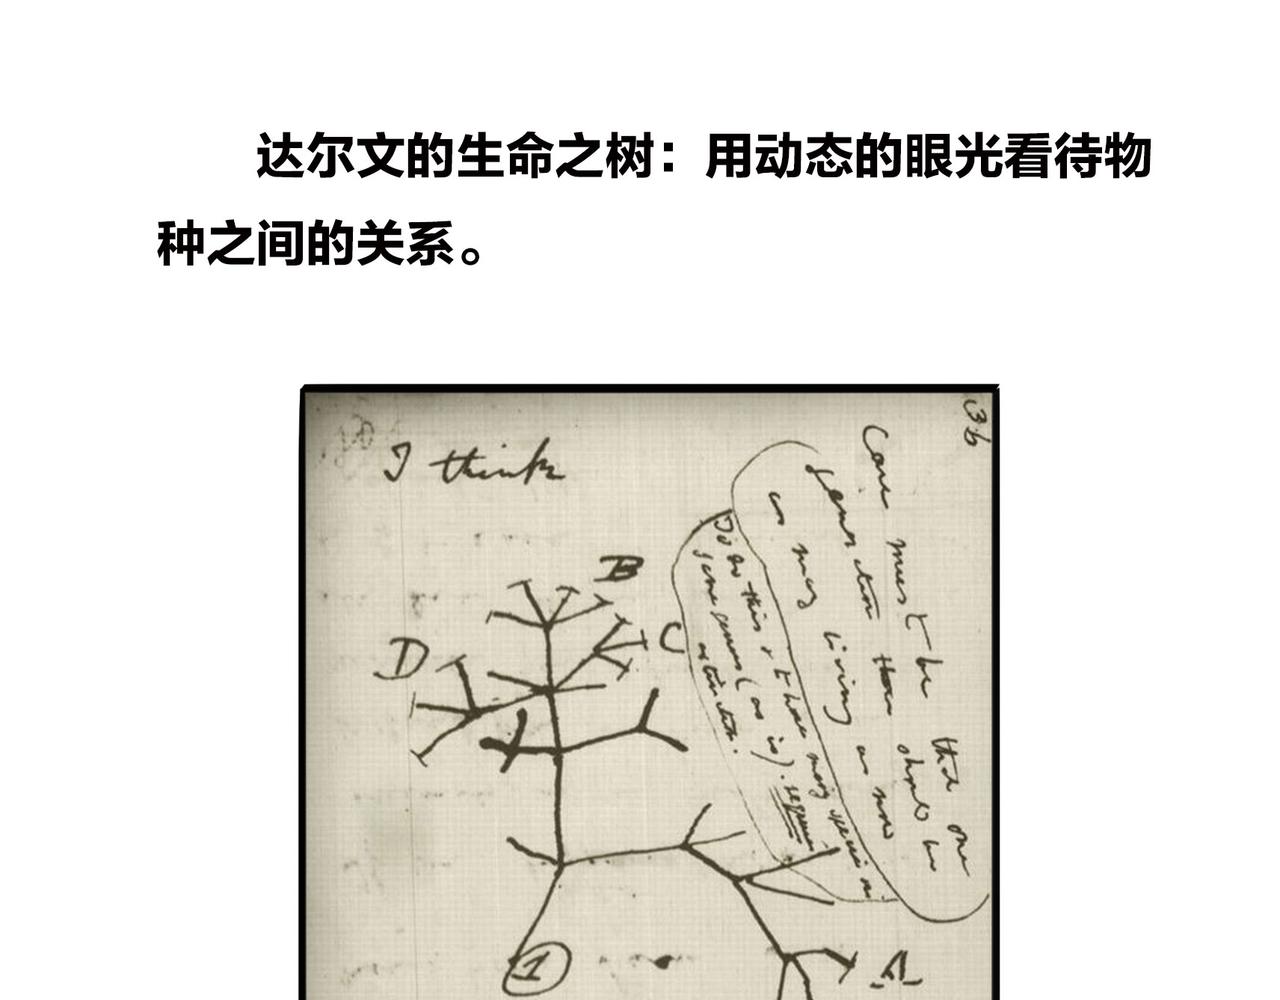 达尔文的生命之树：用动态的眼光看待物
种之间的关系。
36
I think
Case must be that one
generation then should be
as many living as now
To do this & to have many species in
same genus (as is). requires
extinction.
B
C
D
A
1